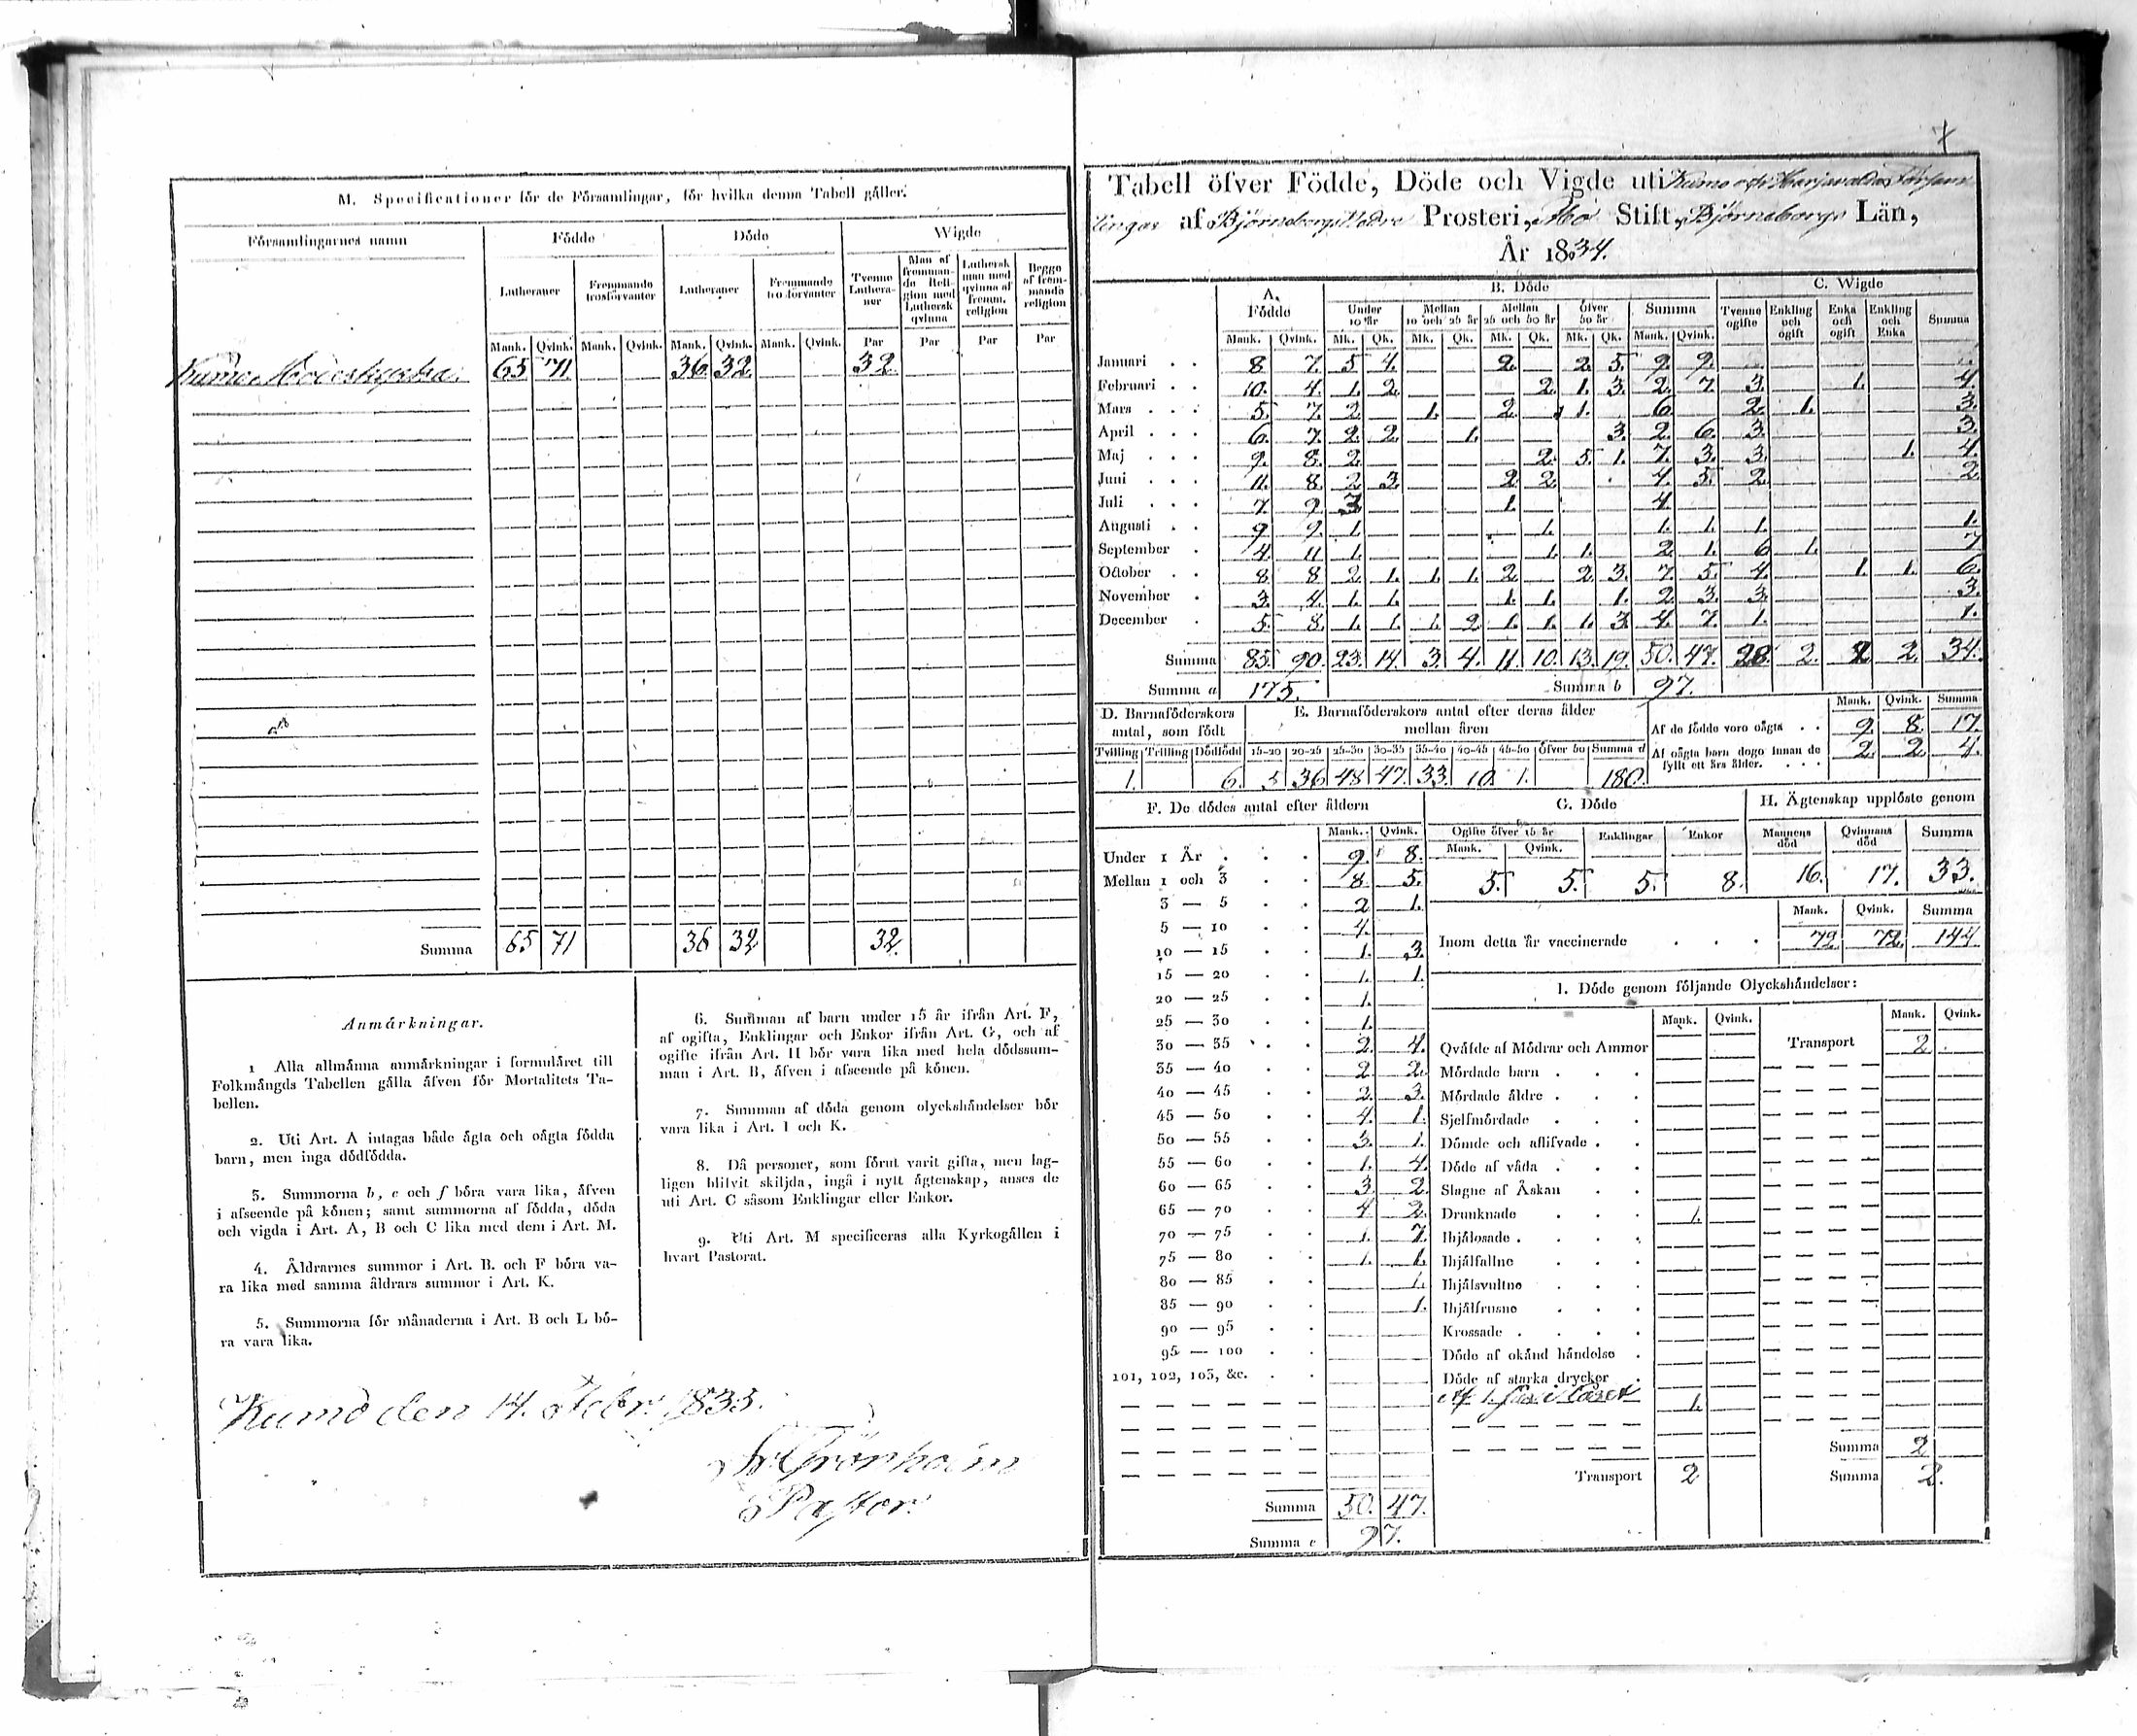 M. Specificationer för de Församlingar, för hvilka denna Tabell gäller.
Församlingarnes namn Födde Döde Wigde
Lutheraner Fremmande trosförvanter Lutheraner Fremmande trosförvanter Tvenne Lutheraner Man af fremmande Religion med Luthersk qvinna Luthersk man med qvinna af fremm. religion Begge af fremmande religion
Mank. Qvink. Mank. Qvink. Mank. Qvink. Mank. Qvink. Par Par Par Par
Kumo Moderkyrka. 65 71. 36. 32. 32.
Summa 65 71 36 32 32.
Anmärkningar.
1 Alla allmänna anmärkningar i formuläret till
Folkmängds Tabellen gälla äfven för Mortalitets Ta-
bellen.
2. Uti Art. A intagas både ägta och oägta födda
barn, men inga dödfödda.
3. Summorna b, e och f böra vara lika, äfven
i afseende på könen; samt summorna af födda, döda
och vigda i Art. A, B och C lika med dem i Art. M.
4. Åldrarnes summor i Art. B. och F böra va-
ra lika med samma åldrars summor i Art. K.
5. Summorna för månaderna i Art. B och L bö-
ra vara lika.
6. Summan af barn under 15 år ifrån Art. F,
af ogifta, Enklingar och Enkor ifrån Art. G, och af
gifte ifrån Art. H bör vara lika med hela dödssum-
man i Art. B, äfven i afseende på könen.
7. Summan af döda genom olyckshändelser bör
vara lika i Art. I och K.
8. Då personer, som förut varit gifta, men lag-
ligen blifvit skiljda, ingå i nytt ägtenskap, anses de
uti Art. C såsom Enklingar eller Enkor.
9. Uti Art. M specificeras alla Kyrkogällen i
hvart Pastorat.
Kumo den 14. 1835.
Pastor.
7
Tabell öfver Födde, Döde och Vigde uti Kumo och Harjavalda Försam
lingar af Björneborgs Nedre Prosteri, Åbo Stift, Björneborgs Län,
År 1834.
A. Födde B. Döde C. Wigde
Under 10 år Mellan 10 och 25 år Mellan 25 och 50 år Öfver 50 år Summa Tvenne ogifte Enkling och ogift Enka och ogift Enkling och Enka Summa
Mank. Qvink. Mk. Qk. Mk. Qk. Mk. Qk. Mk. Qk. Mank. Qvink.
Januari 8 7. 5 4. 2. 2. 5. 9. 9.
Februari 10. 4. 1. 2. 2. 1. 3. 2. 7. 3. 1. 4.
Mars 5. 7. 2. 1. 2. 1. 6. 2. 1. 3.
April 6. 7. 2. 2. 1. 3. 2. 6. 3. 3.
Maj 9. 8. 2. 2. 5. 1. 7. 3. 3. 1. 4.
Juni 11. 8. 2 3. 2 2. 4. 5. 2. 2.
Juli 7. 9. 3 1. 4.
Augusti 9. 9. 1. 1. 1. 1. 1. 1.
September 4. 11. 1. 1. 1. 2. 1. 6. 1. 7.
October 8. 8. 2. 1. 1. 1. 2. 2. 3. 7. 5. 4. 1. 1. 6.
November 3. 4. 1. 1. 1. 1. 1. 2. 3. 3. 3.
December 5. 8. 1. 1. 1. 2. 1. 1. 1. 3. 4. 7. 1. 1.
Summa 85. 90. 23. 14. 3. 4. 11. 10. 13. 19. 50. 47. 28. 2. 2 2. 34.
Summa a 175. Summa b 97.
D. Barnaföderskors antal, som födt E. Barnaföderskors antal efter deras ålder mellan åren Mank. Qvink. Summa
Tvilling Trilling Dödfödt 15-20 20-25 25-30 30-35 35-40 40-45 45-50 Öfver 50 Summa d
1. 6. 5 36 48 47. 33. 10. 1. 180.
Af de födde voro oägta 9. 8. 17.
Af oägta barn dogo innan de fyllt ett års ålder. 2. 2. 4.
F. De dödes antal efter åldern
Mank. Qvink.
Under 1 År 9. 8.
Mellan 1 och 3 8. 5.
3 — 5 2 1.
5 — 10 4.
10 — 15 1. 3.
15 — 20 1. 1.
20 — 25 1.
25 — 30 1.
30 — 35 2 4.
35 — 40 2 2.
40 — 45 2. 3.
45 — 50 4. 1.
50 — 55 3. 1.
55 — 60 1. 4.
60 — 65 3 2.
65 — 70 4 2.
70 — 75 1. 7.
75 — 80 1. 1.
80 — 85 1.
85 — 90 1.
90 — 95
95 — 100
101, 102, 103, &c.
Summa 50. 47.
Summa c 97.
G. Döde H. Ägtenskap upplöste genom
Ogifte öfver 15 år Enklingar Enkor Mannens död Qvinnans död Summa
Mank. Qvink.
5. 5. 5. 8. 16. 17. 33.
Mank. Qvink. Summa
Inom detta år vaccinerade 72. 72. 144
I. Döde genom följande Olyckshändelser:
Mank. Qvink. Mank. Qvink.
Qväfde af Mödrar och Ammor Transport 2
Mördade barn
Mördade äldre
Sjelfmördade
Dömde och aflifvade
Döde af våda
Slagne af Åskan
Drunknade 1.
Ihjälosade
Ihjälfallne
Ihjälsvultne
Ihjälfrusne
Krossade
Döde af okänd händelse
Döde af starka drycker
1.
Summa 2
Transport 2 Summa 2.